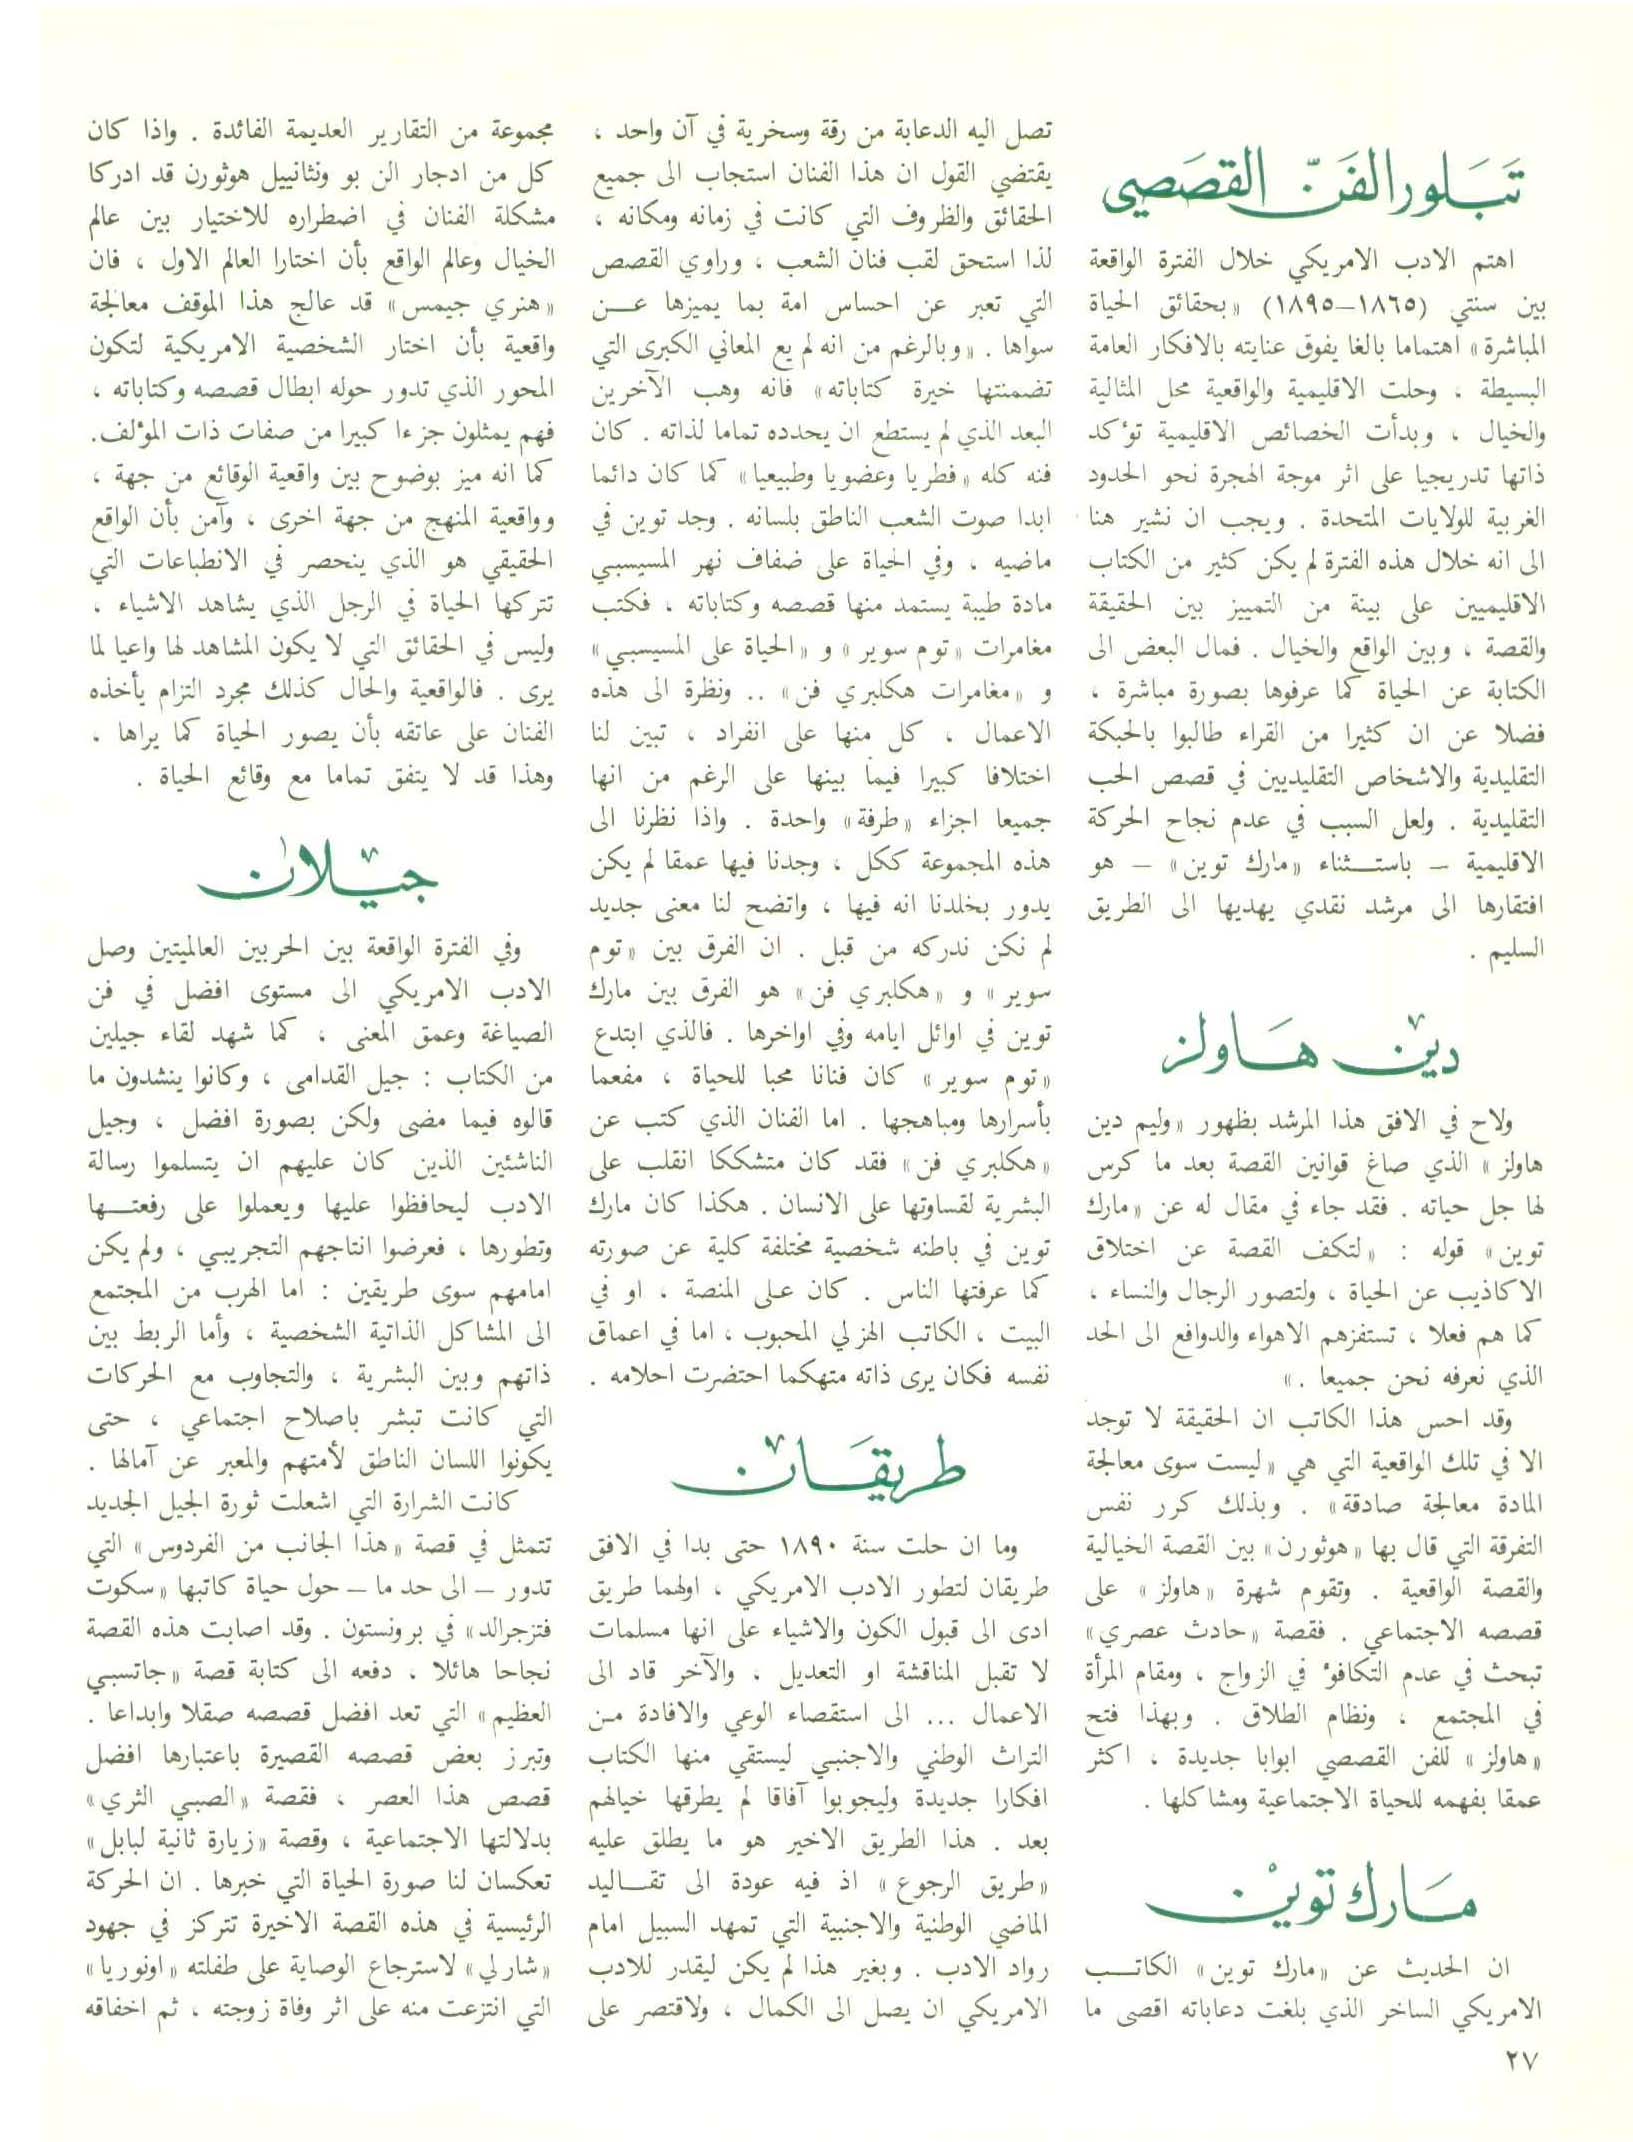 تبلور الفن القصصي
اهتم الادب الامريكي خلال الفترة الواقعة
بين سنتي (١٨٦٥–١٨٩٥) «بحقائق الحياة
المباشرة» اهتماما بالغا يفوق عنايته بالافكار العامة
البسيطة ، وحلت الاقليمية والواقعية محل المثالية
والخيال ، وبدأت الخصائص الاقليمية تؤكد
ذاتها تدريجيا على اثر موجة الهجرة نحو الحدود
الغربية للولايات المتحدة . ويجب ان نشير هنا
الى انه خلال هذه الفترة لم يكن كثير من الكتاب
الاقليميين على بينة من التمييز بين الحقيقة
والقصة ، وبين الواقع والخيال . فمال البعض الى
الكتابة عن الحياة كما عرفوها بصورة مباشرة ،
فضلا عن ان كثيرا من القراء طالبوا بالحبكة
التقليدية والاشخاص التقليديين في قصص الحب
التقليدية . ولعل السبب في عدم نجاح الحركة
الاقليمية – باستثناء «مارك توين» – هو
افتقارها الى مرشد نقدي يهديها الى الطريق
السليم .
دين هاولز
ولاح في الافق هذا المرشد بظهور «وليم دين
هاولز» الذي صاغ قوانين القصة بعد ما كرس
لها جل حياته . فقد جاء في مقال له عن «مارك
توين» قوله : «لتكف القصة عن اختلاق
الاكاذيب عن الحياة ، ولتصور الرجال والنساء ،
كما هم فعلا ، تستفزهم الاهواء والدوافع الى الحد
الذي نعرفه نحن جميعا . »
وقد احس هذا الكاتب ان الحقيقة لا توجد
الا في تلك الواقعية التي هي «ليست سوى معالجة
المادة معالجة صادقة» . وبذلك كرر نفس
التفرقة التي قال بها «هوثورن» بين القصة الخيالية
والقصة الواقعية . وتقوم شهرة «هاولز» على
قصصه الاجتماعي . فقصة «حادث عصري»
تبحث في عدم التكافؤ في الزواج ، ومقام المرأة
في المجتمع ، ونظام الطلاق . وبهذا فتح
«هاولز» للفن القصصي ابوابا جديدة ، اكثر
عمقا بفهمه للحياة الاجتماعية ومشاكلها .
مارك توين
ان الحديث عن «مارك توين» الكاتب
الامريكي الساخر الذي بلغت دعاباته اقصى ما
تصل اليه الدعابة من رقة وسخرية في آن واحد ،
يقتضي القول ان هذا الفنان استجاب الى جميع
الحقائق والظروف التي كانت في زمانه ومكانه ،
لذا استحق لقب فنان الشعب ، وراوي القصص
التي تعبر عن احساس امة بما يميزها عن
سواها . «وبالرغم من انه لم يع المعاني الكبرى التي
تضمنتها خيرة كتاباته» فانه وهب الآخرين
البعد الذي لم يستطع ان يحدده تماما لذاته . كان
فنه كله «فطريا وعضويا وطبيعيا» كما كان دائما
ابدا صوت الشعب الناطق بلسانه . وجد توين في
ماضيه ، وفي الحياة على ضفاف نهر المسيسبي
مادة طيبة يستمد منها قصصه وكتاباته ، فكتب
مغامرات «توم سوير» و «الحياة على المسيسبي»
و «مغامرات هكلبري فن» .. ونظرة الى هذه
الاعمال ، كل منها على انفراد ، تبين لنا
اختلافا كبيرا فيما بينها على الرغم من انها
جميعا اجزاء «طرفة» واحدة . واذا نظرنا الى
هذه المجموعة ككل ، وجدنا فيها عمقا لم يكن
يدور بخلدنا انه فيها ، واتضح لنا معنى جديد
لم نكن ندركه من قبل . ان الفرق بين «توم
سوير» و «هكلبري فن» هو الفرق بين مارك
توين في اوائل ايامه وفي اواخرها . فالذي ابتدع
«توم سوير» كان فنانا محبا للحياة ، مفعما
بأسرارها ومباهجها . اما الفنان الذي كتب عن
«هكلبري فن» فقد كان متشككا انقلب على
البشرية لقساوتها على الانسان . هكذا كان مارك
توين في باطنه شخصية مختلفة كلية عن صورته
كما عرفتها الناس . كان على المنصة ، او في
البيت ، الكاتب الهزلي المحبوب ، اما في اعماق
نفسه فكان يرى ذاته متهكما احتضرت احلامه .
طريقان
وما ان حلت سنة ١٨٩٠ حتى بدا في الافق
طريقان لتطور الادب الامريكي ، اولهما طريق
ادى الى قبول الكون والاشياء على انها مسلمات
لا تقبل المناقشة او التعديل ، والآخر قاد الى
الاعمال ... الى استقصاء الوعي والافادة من
التراث الوطني والاجنبي ليستقي منها الكتاب
افكارا جديدة وليجوبوا آفاقا لم يطرقها خيالهم
بعد . هذا الطريق الاخير هو ما يطلق عليه
«طريق الرجوع» اذ فيه عودة الى تقاليد
الماضي الوطنية والاجنبية التي تمهد السبيل امام
رواد الادب . وبغير هذا لم يكن ليقدر للادب
الامريكي ان يصل الى الكمال ، ولاقتصر على
مجموعة من التقارير العديمة الفائدة . واذا كان
كل من ادجار الن بو ونثانييل هوثورن قد ادركا
مشكلة الفنان في اضطراره للاختيار بين عالم
الخيال وعالم الواقع بأن اختارا العالم الاول ، فان
«هنري جيمس» قد عالج هذا الموقف معالجة
واقعية بأن اختار الشخصية الامريكية لتكون
المحور الذي تدور حوله ابطال قصصه وكتاباته ،
فهم يمثلون جزءا كبيرا من صفات ذات المؤلف.
كما انه ميز بوضوح بين واقعية الوقائع من جهة ،
وواقعية المنهج من جهة اخرى ، وآمن بأن الواقع
الحقيقي هو الذي ينحصر في الانطباعات التي
تتركها الحياة في الرجل الذي يشاهد الاشياء ،
وليس في الحقائق التي لا يكون المشاهد لها واعيا لما
يرى . فالواقعية والحال كذلك مجرد التزام يأخذه
الفنان على عاتقه بأن يصور الحياة كما يراها .
وهذا قد لا يتفق تماما مع وقائع الحياة .
جيلان
وفي الفترة الواقعة بين الحربين العالميتين وصل
الادب الامريكي الى مستوى افضل في فن
الصياغة وعمق المعنى ، كما شهد لقاء جيلين
من الكتاب : جيل القدامى ، وكانوا ينشدون ما
قالوه فيما مضى ولكن بصورة افضل ، وجيل
الناشئين الذين كان عليهم ان يتسلموا رسالة
الادب ليحافظوا عليها ويعملوا على رفعتها
وتطورها ، فعرضوا انتاجهم التجريبي ، ولم يكن
امامهم سوى طريقين : اما الهرب من المجتمع
الى المشاكل الذاتية الشخصية ، وأما الربط بين
ذاتهم وبين البشرية ، والتجاوب مع الحركات
التي كانت تبشر باصلاح اجتماعي ، حتى
يكونوا اللسان الناطق لأمتهم والمعبر عن آمالها .
كانت الشرارة التي اشعلت ثورة الجيل الجديد
تتمثل في قصة «هذا الجانب من الفردوس» التي
تدور – الى حد ما – حول حياة كاتبها «سكوت
فتزجرالد» في برونستون . وقد اصابت هذه القصة
نجاحا هائلا ، دفعه الى كتابة قصة «جاتسبي
العظيم» التي تعد افضل قصصه صقلا وابداعا .
وتبرز بعض قصصه القصيرة باعتبارها افضل
قصص هذا العصر ، فقصة «الصبي الثري»
بدلالتها الاجتماعية ، وقصة «زيارة ثانية لبابل»
تعكسان لنا صورة الحياة التي خبرها . ان الحركة
الرئيسية في هذه القصة الاخيرة تتركز في جهود
«شارلي» لاسترجاع الوصاية على طفلته «اونوريا»
التي انتزعت منه على اثر وفاة زوجته ، ثم اخفاقه
٢٧